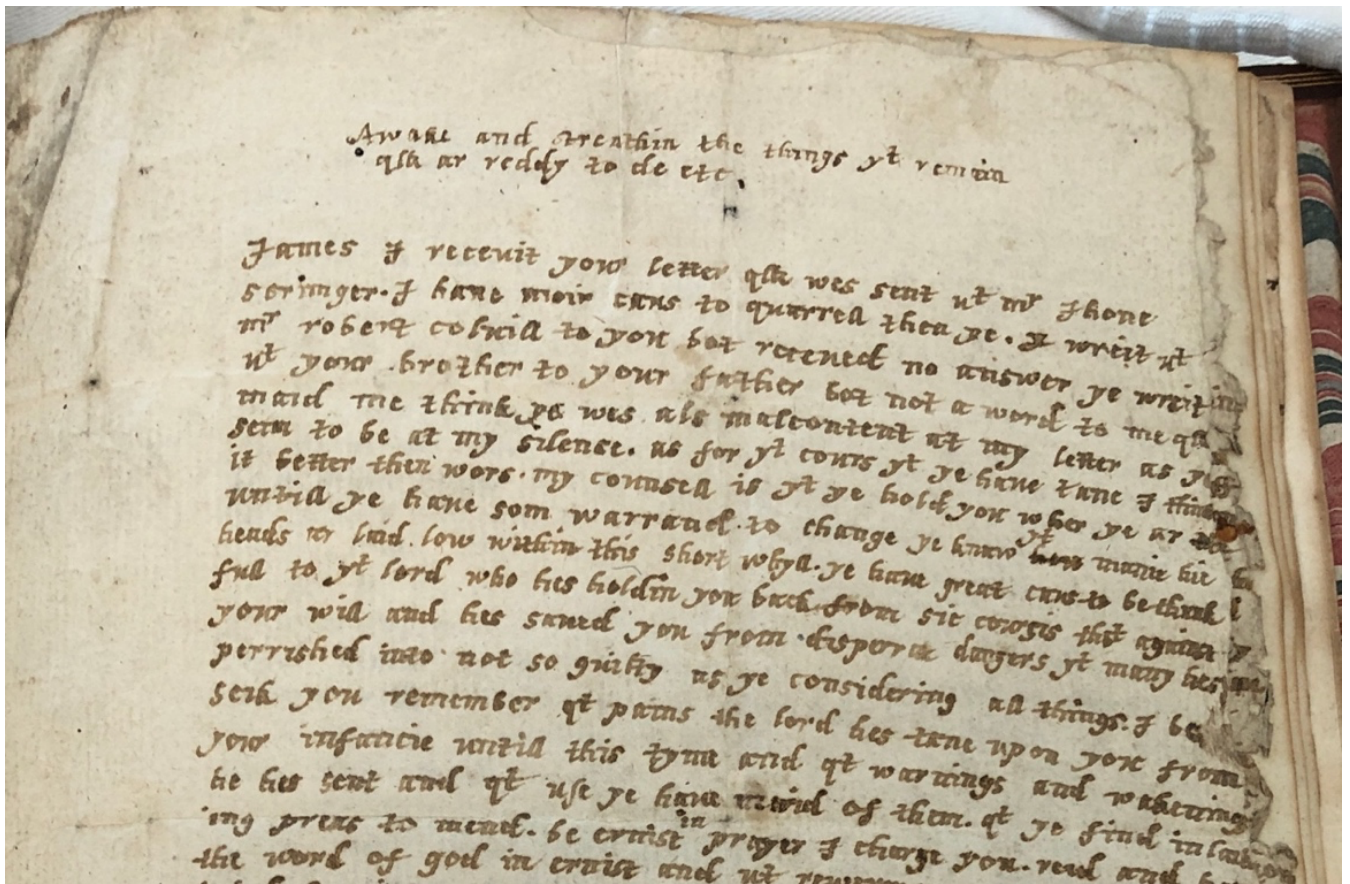 Awake and strenthin the things yt remain
qlk ar reddy to de etc.
James I recevit your letter qlk wes sent wt mr Jhone
scrimger. I have moir caus to quarrell then ye. I wreit wt
mr robert colvill to you bot receved no answer ye wreit
wt your brother to your father bot not a word to me qlk
maid me think ye wes als malcontent at my letter as ye
sem to be at my silence. as for yt cours yt ye have tane I think
it better then wors. my counsell is yt ye hold you wher ye ar
untill ye have som warrand to change ye knaw yt manie hie
heads ar laid low within this short whyll. ye have great caus to be thank
full to yt lord who hes holdin you back from sic corsis against
your will and hes saved you from disperrat dangers yt many hes
perrished into not so guilty as ye considering all things. I be
seik you remember qt pains the lord hes tane upon you from
your infancie untill this tym and qt warnings and wakenings
he hes sent and qt use ye have maid of them. qt ye find in
ing preas to mend. be ernist in prayer I charge you. reid and
the word of god in ernist and wt